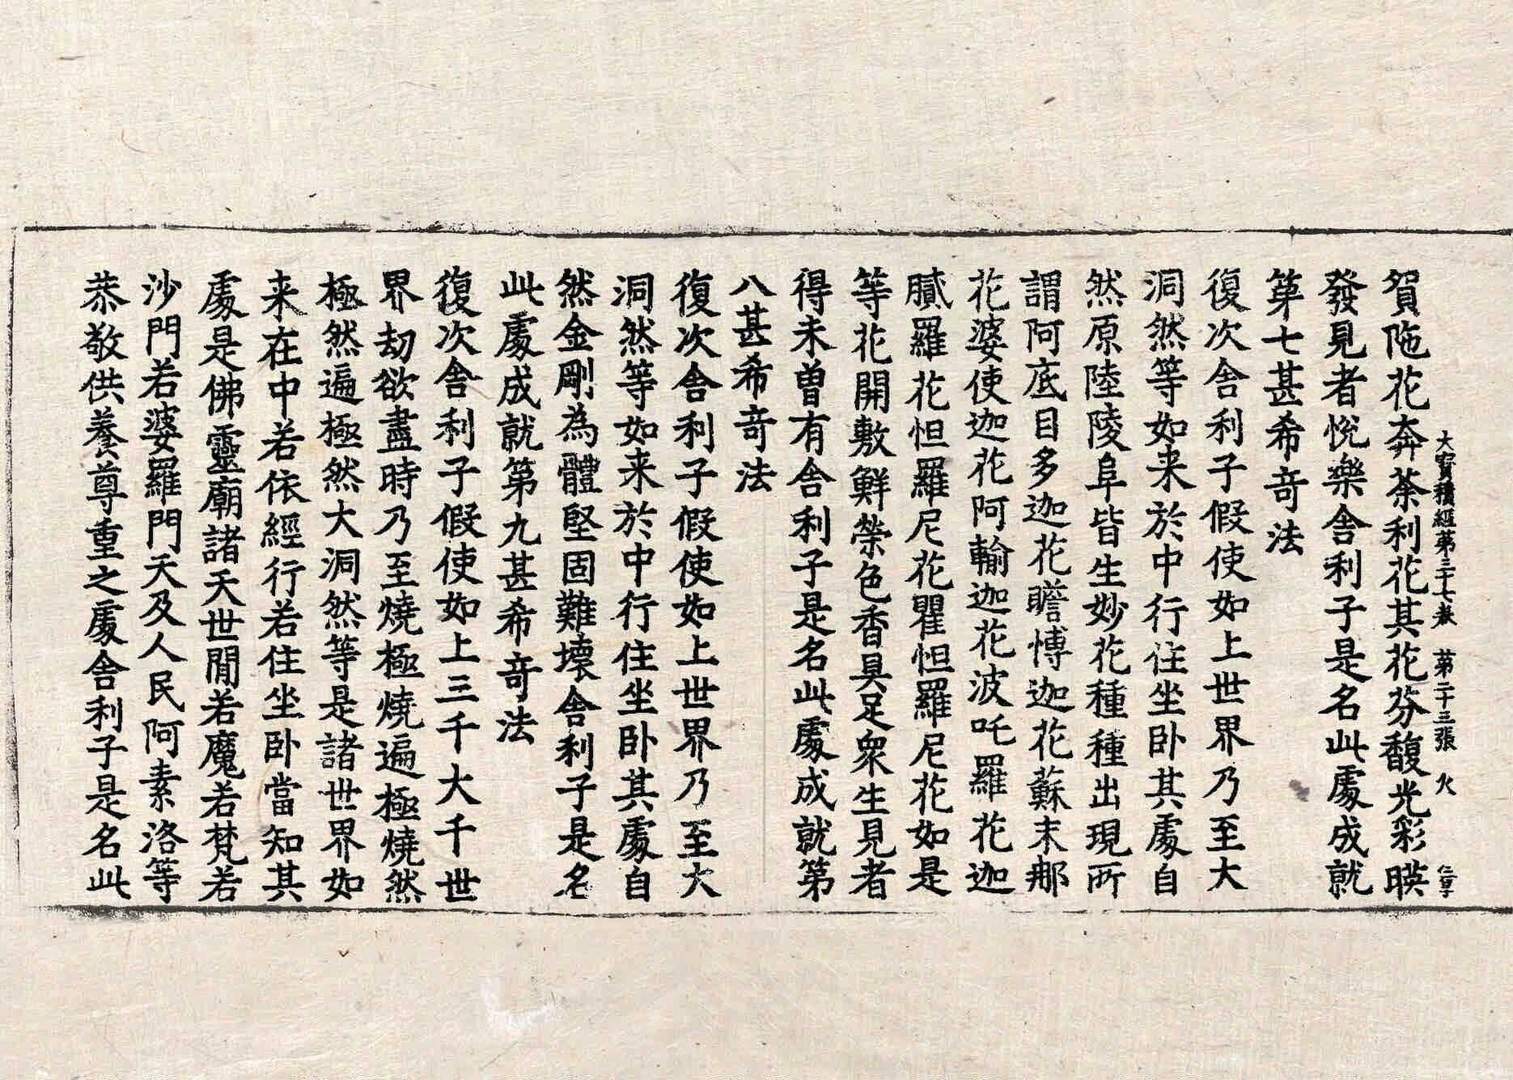 賀陁花奔荼利花其花芬馥光彩暎
大寶積經第三十七卷 第二十三張 火
發見者悅樂舍利子是名此處成就
第七甚希竒法
復次舍利子假使如上世界乃至大
洞然等如来於中行住坐卧其處自
然原陸陵阜皆生妙花種種出現所
謂阿底目多迦花瞻愽迦花蘇末那
花婆使迦花阿輸迦花波吒羅花迦
膩羅花怛羅尼花瞿怛羅尼花如是
等花開敷鮮榮色香具足衆生見者
得未曾有舍利子是名此處成就第
八甚希竒法
復次舍利子假使如上世界乃至大
洞然等如来於中行住坐卧其處自
然金剛為體堅固難壞舍利子是名
此處成就第九甚希竒法
復次舍利子假使如上三千大千世
界劫欲盡時乃至燒極燒遍極燒然
極然遍極然大洞然等是諸世界如
来在中若依經行若住坐卧當知其
處是佛靈廟諸天世閒若魔若梵若
沙門若婆羅門天及人民阿素洛等
恭敬供養尊重之處舍利子是名此